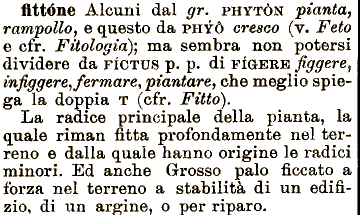 fittóne Alcuni dal gr. PHYTÒN pianta,
rampollo, e questo da PHYÔ cresco (v. Feto
e cfr. Fitologia); ma sembra non potersi
dividere da FÍCTUS p. p. di FÍGERE figgere,
infiggere, fermare, piantare, che meglio spie-
ga la doppia T (cfr. Fitto).
La radice principale della pianta, la
quale riman fitta profondamente nel ter-
reno e dalla quale hanno origine le radici
minori. Ed anche Grosso palo ficcato a
forza nel terreno a stabilità di un edifi-
zio, di un argine, o per riparo.